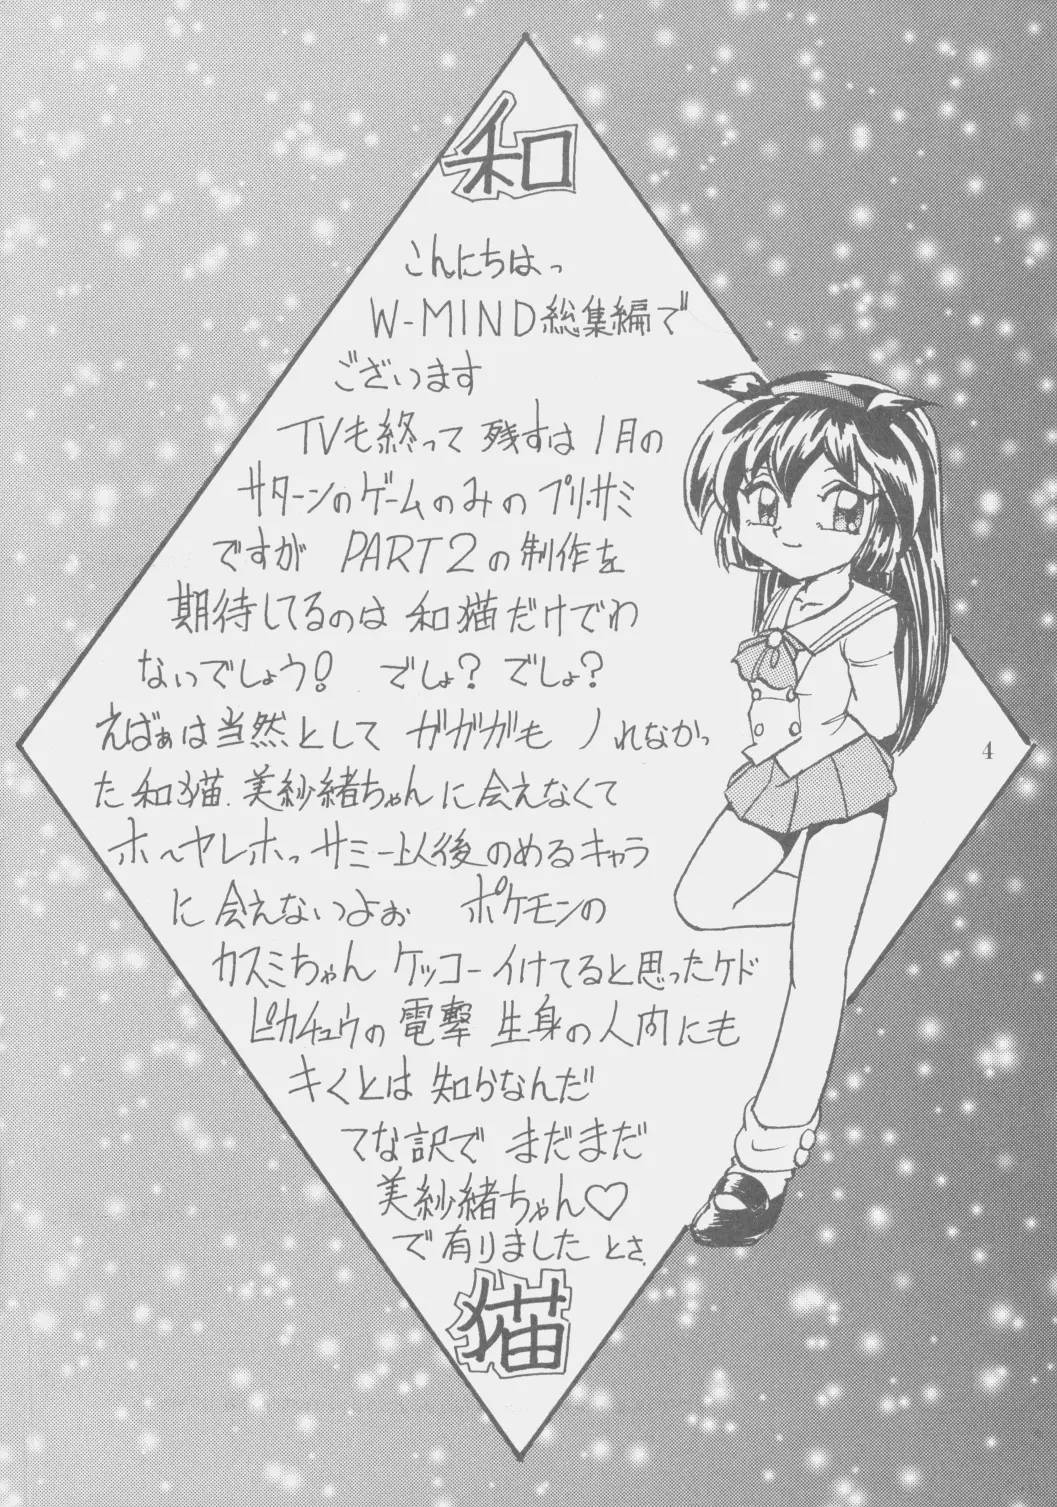 和
こんにちはっ
W-MIND総集編で
ございます
TVも終って 残すは 1月の
サターンのゲームのみの プリ・サミ
ですが PART2の制作を
期待してるのは 和猫だけでわ
ないでしょう! でしょ? でしょ?
えばぁは当然として ガガガも ノれなかっ
た和猫. 美紗緒ちゃんに会えなくて
ホ〜ヤレホっ サミー以後のめるキャラ
に 会えないつよぉ ポケモンの
カスミちゃん ケッコーイけてると思ったケド
ピカチュウの電撃 生身の人間にも
キくとは 知らなんだ
てな訳で まだまだ
美紗緒ちゃん♡
で有りました とさ.
猫
4